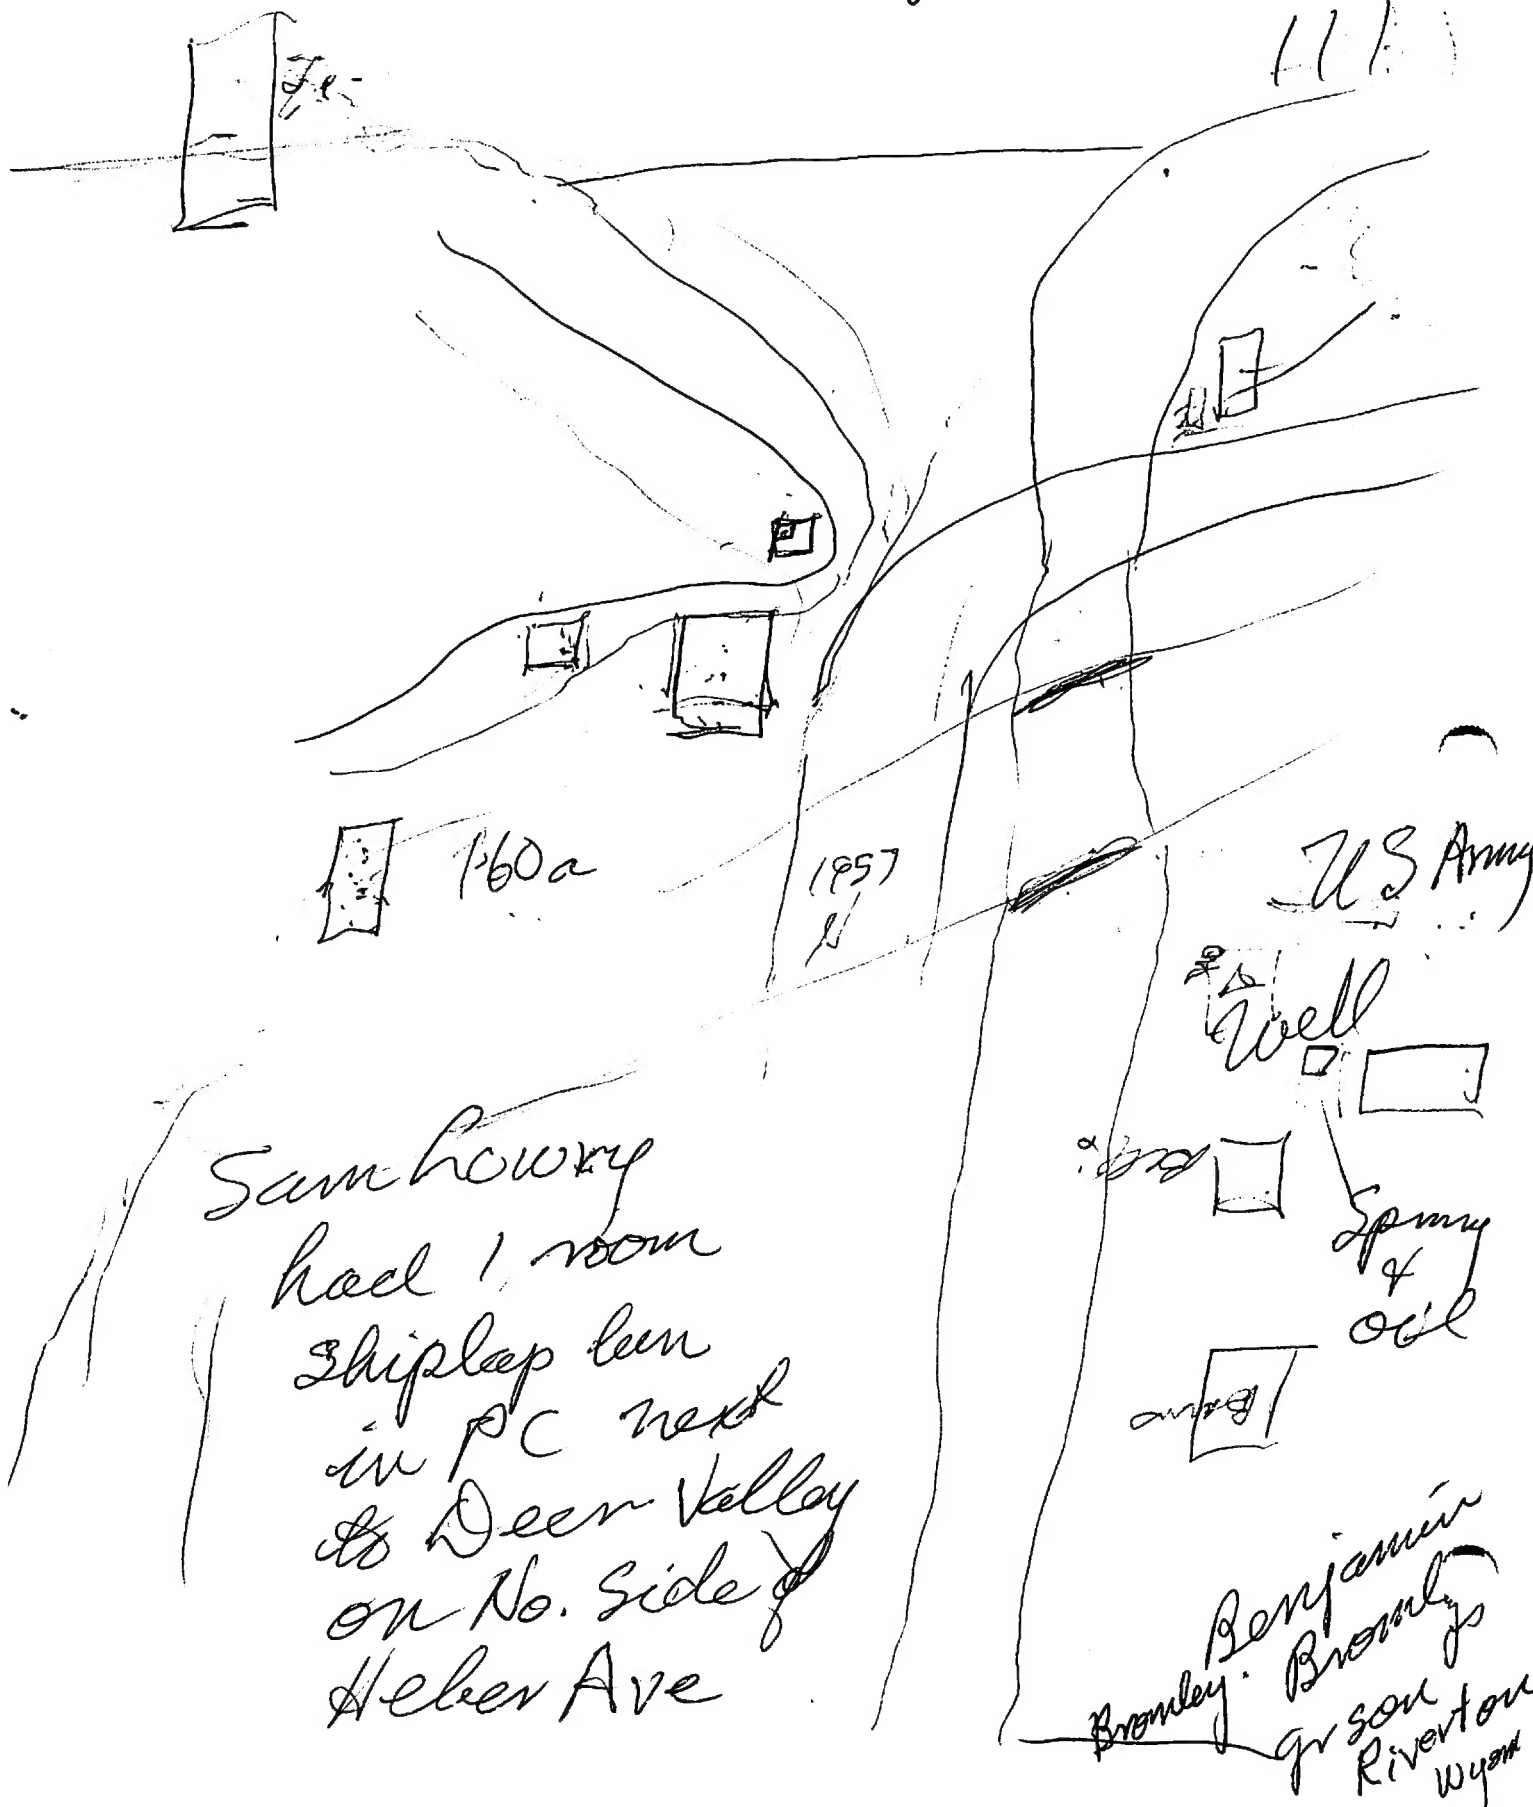 160a
1857
N
US Army
Well
Spring
&
oil
Barn
Sam Lowry
had 1 room
shiplap
in PC next
to Deer Valley
on No. side of
Heber Ave
Benjamin
Bromley. Bromlys
gr son
Riverton
Wyom